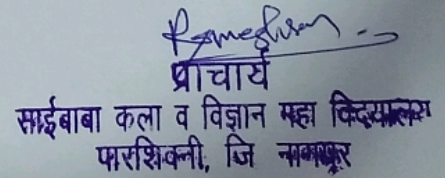 प्राचार्य
साईबाबा कला व विज्ञान महा विद्यालय
पारशिवनी, जि नागपूर